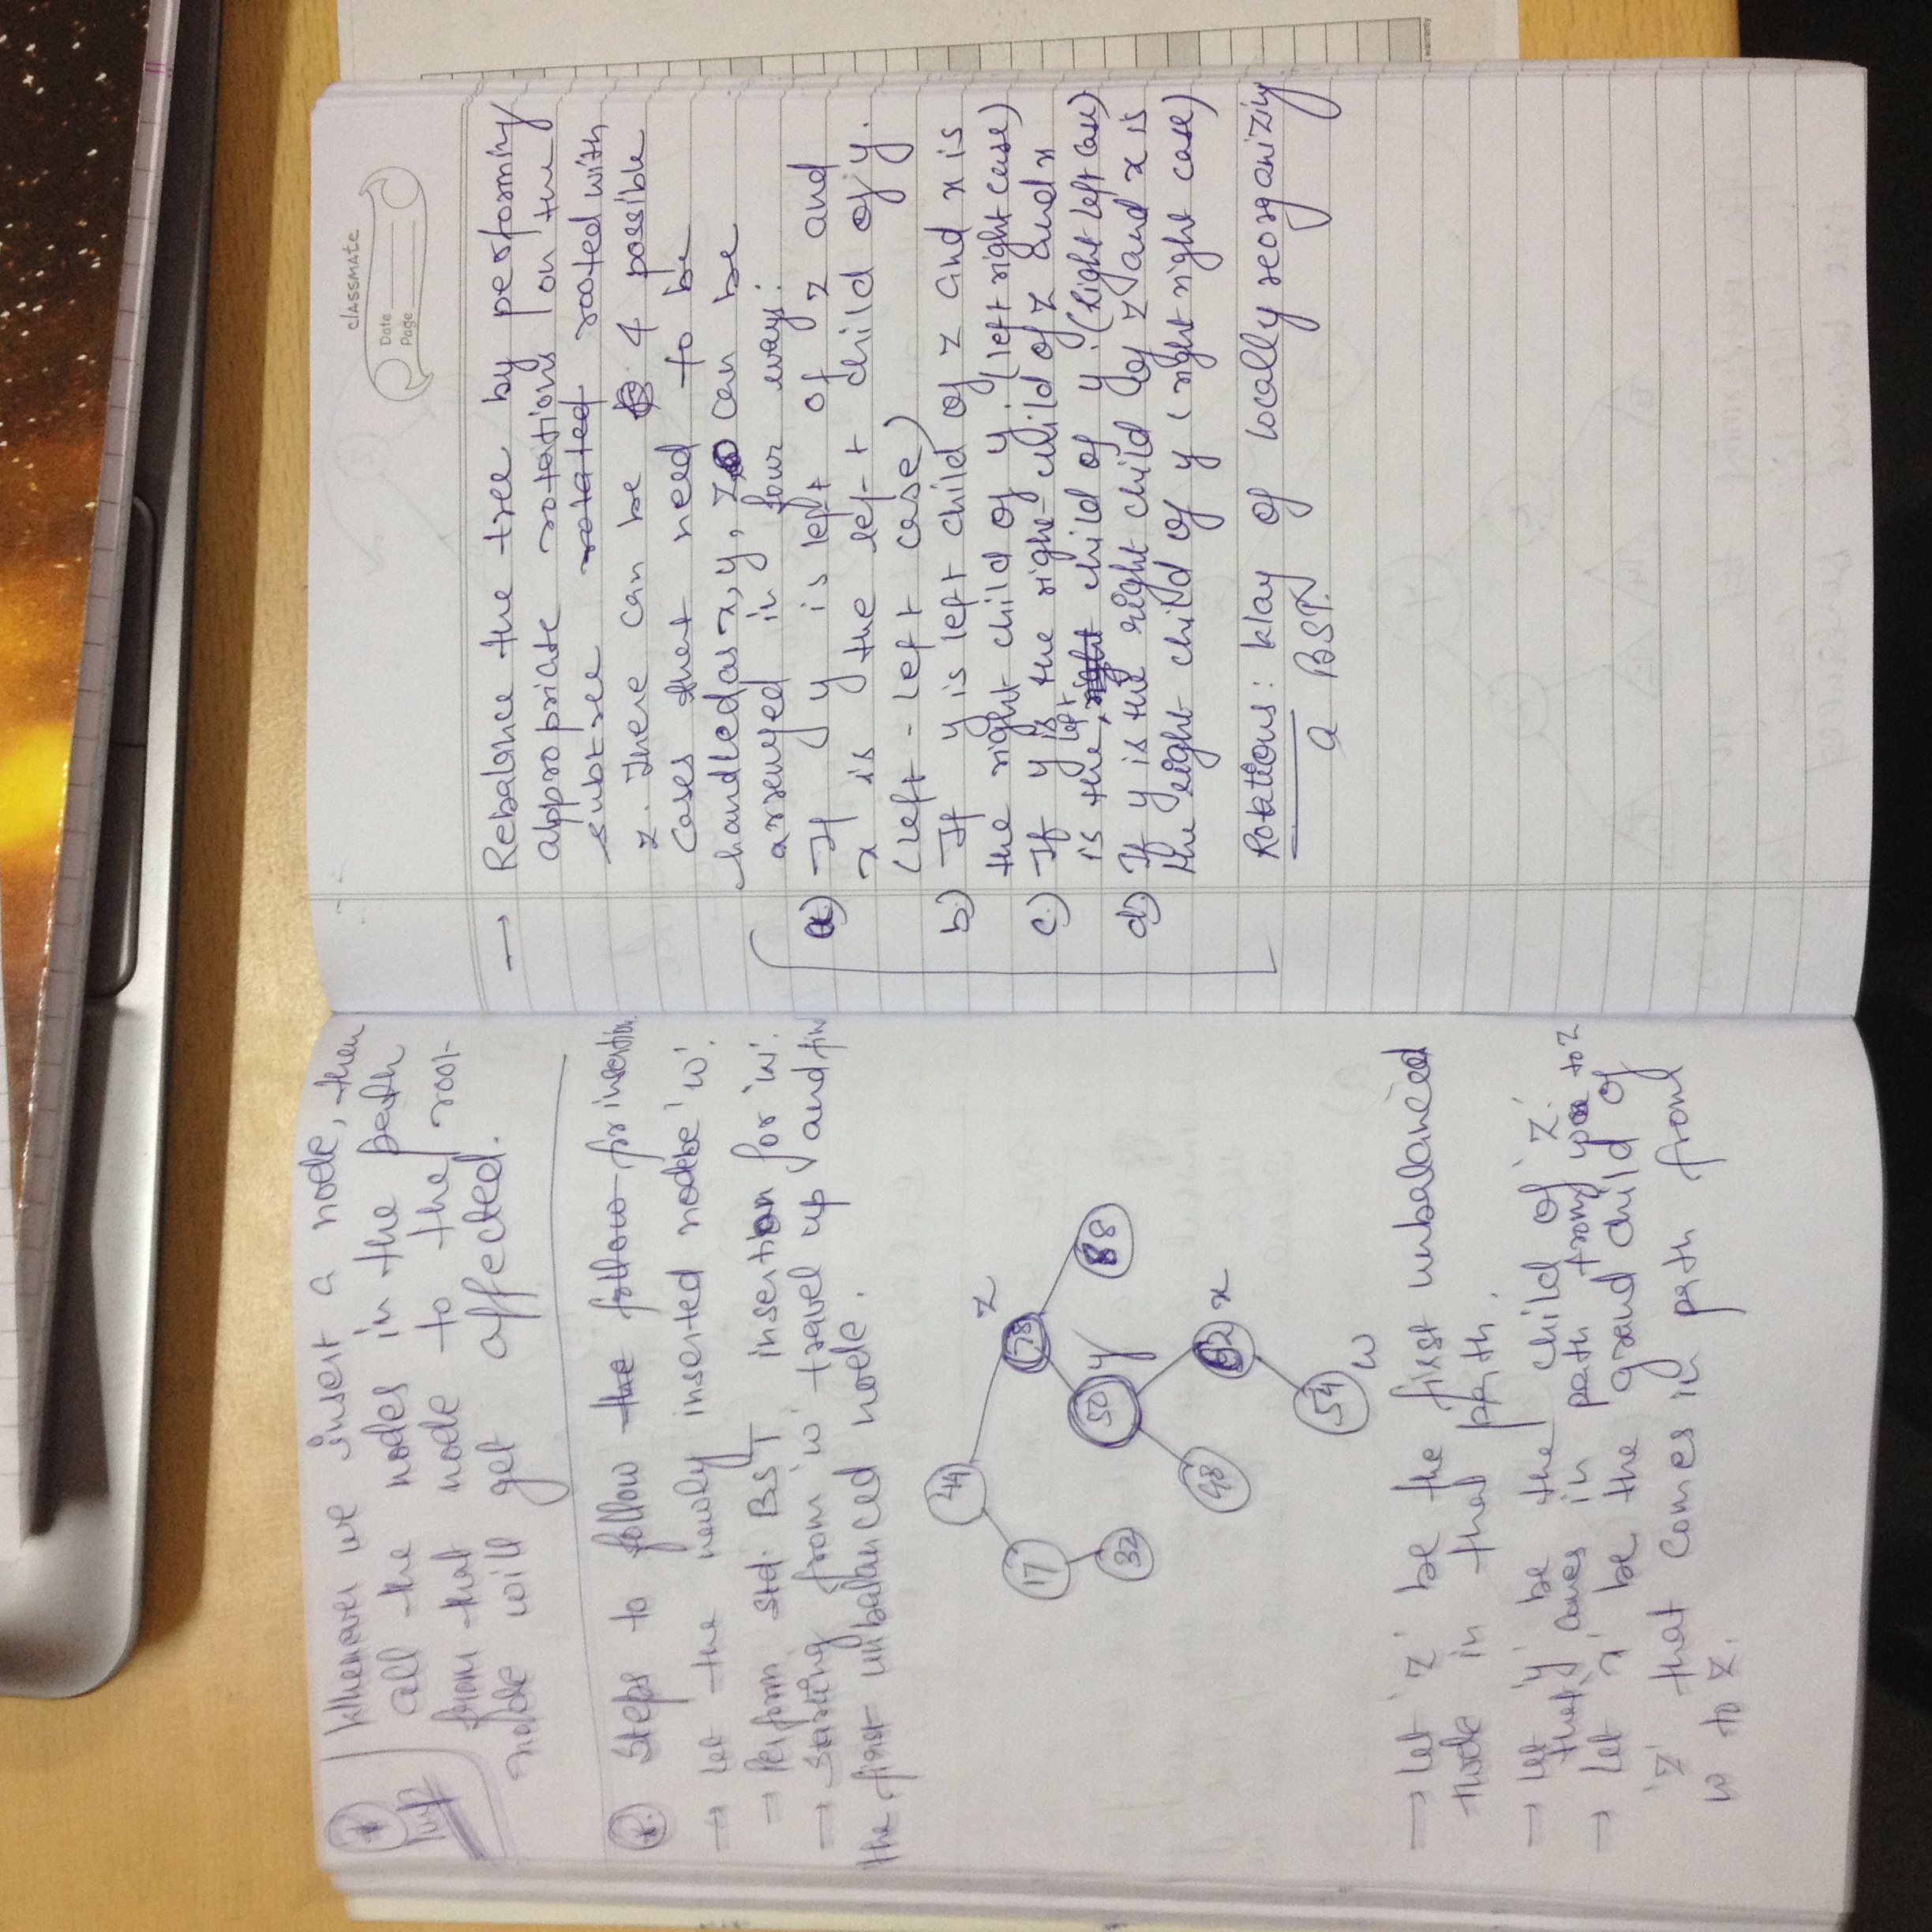 Imp
Whenever we insert a node, then
all the nodes in the path
from that node to the root
node will get affected.
Steps to follow the follow for insertion
→ let the newly inserted node be 'w'.
→ Perform std. BST insertion for 'w'.
→ Starting from 'w' travel up and fin
the first unbalanced node.
44
z
17
78
32
50
88
y
48
62
x
54
w
→ let 'z' be the first unbalanced
node in that path.
→ let 'y' be the child of 'z'
that comes in path from w to z
→ let 'x' be the grand child of
'z' that comes in path from
w to z.
classmate
Date
Page
→ Rebalance the tree by performing
appropriate rotations on the
subtree rotated rooted with
z. There can be 4 possible
cases that need to be
handled as x, y, z can be
arrenged in four ways:
a) If y is left of z and
x is the left child of y.
(left - left case)
b.) If y is left child of z and x is
the right child of y. (left right case)
c.) If y is the right child of z and x
is the right left child of y. (Right left case)
d) If y is the right child of z and x is
the right child of y (right right case)
Rotations: Way of locally reorganizing
a BST.